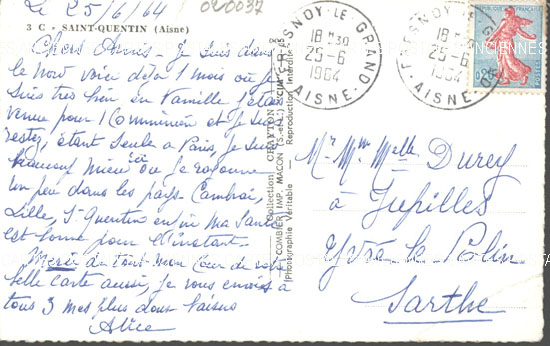 Le 25/6/64
020037
3 C - SAINT-QUENTIN (Aisne)
Chers Amis - Je suis dans
le Nord voici déjà 1 mois où je
suis très bien en Famille j'étais
venue pour 1 Communion et je suis
resté, étant seule à Paris, je suis
beaucoup mieux ici où je rayonne
un peu dans les pays Cambrai,
Lille, St Quentin enfin ma Santé
est bonne pour l'instant.
Merci de tout mon Coeur de votre
belle carte aussi, je vous envoies à
tous 3 mes plus doux baisers
Alice
Collection
COMBIER IMP. MACON (S.-et-L.)
Photographie Véritable
Reproduction Interdite
FRESNOY-LE-GRAND
18H30
25-6
1964
AISNE
FRESNOY-LE-GRAND
18H30
25-6
1964
AISNE
Mr Mme Melle Durey
à Jupilles
par la
Sarthe